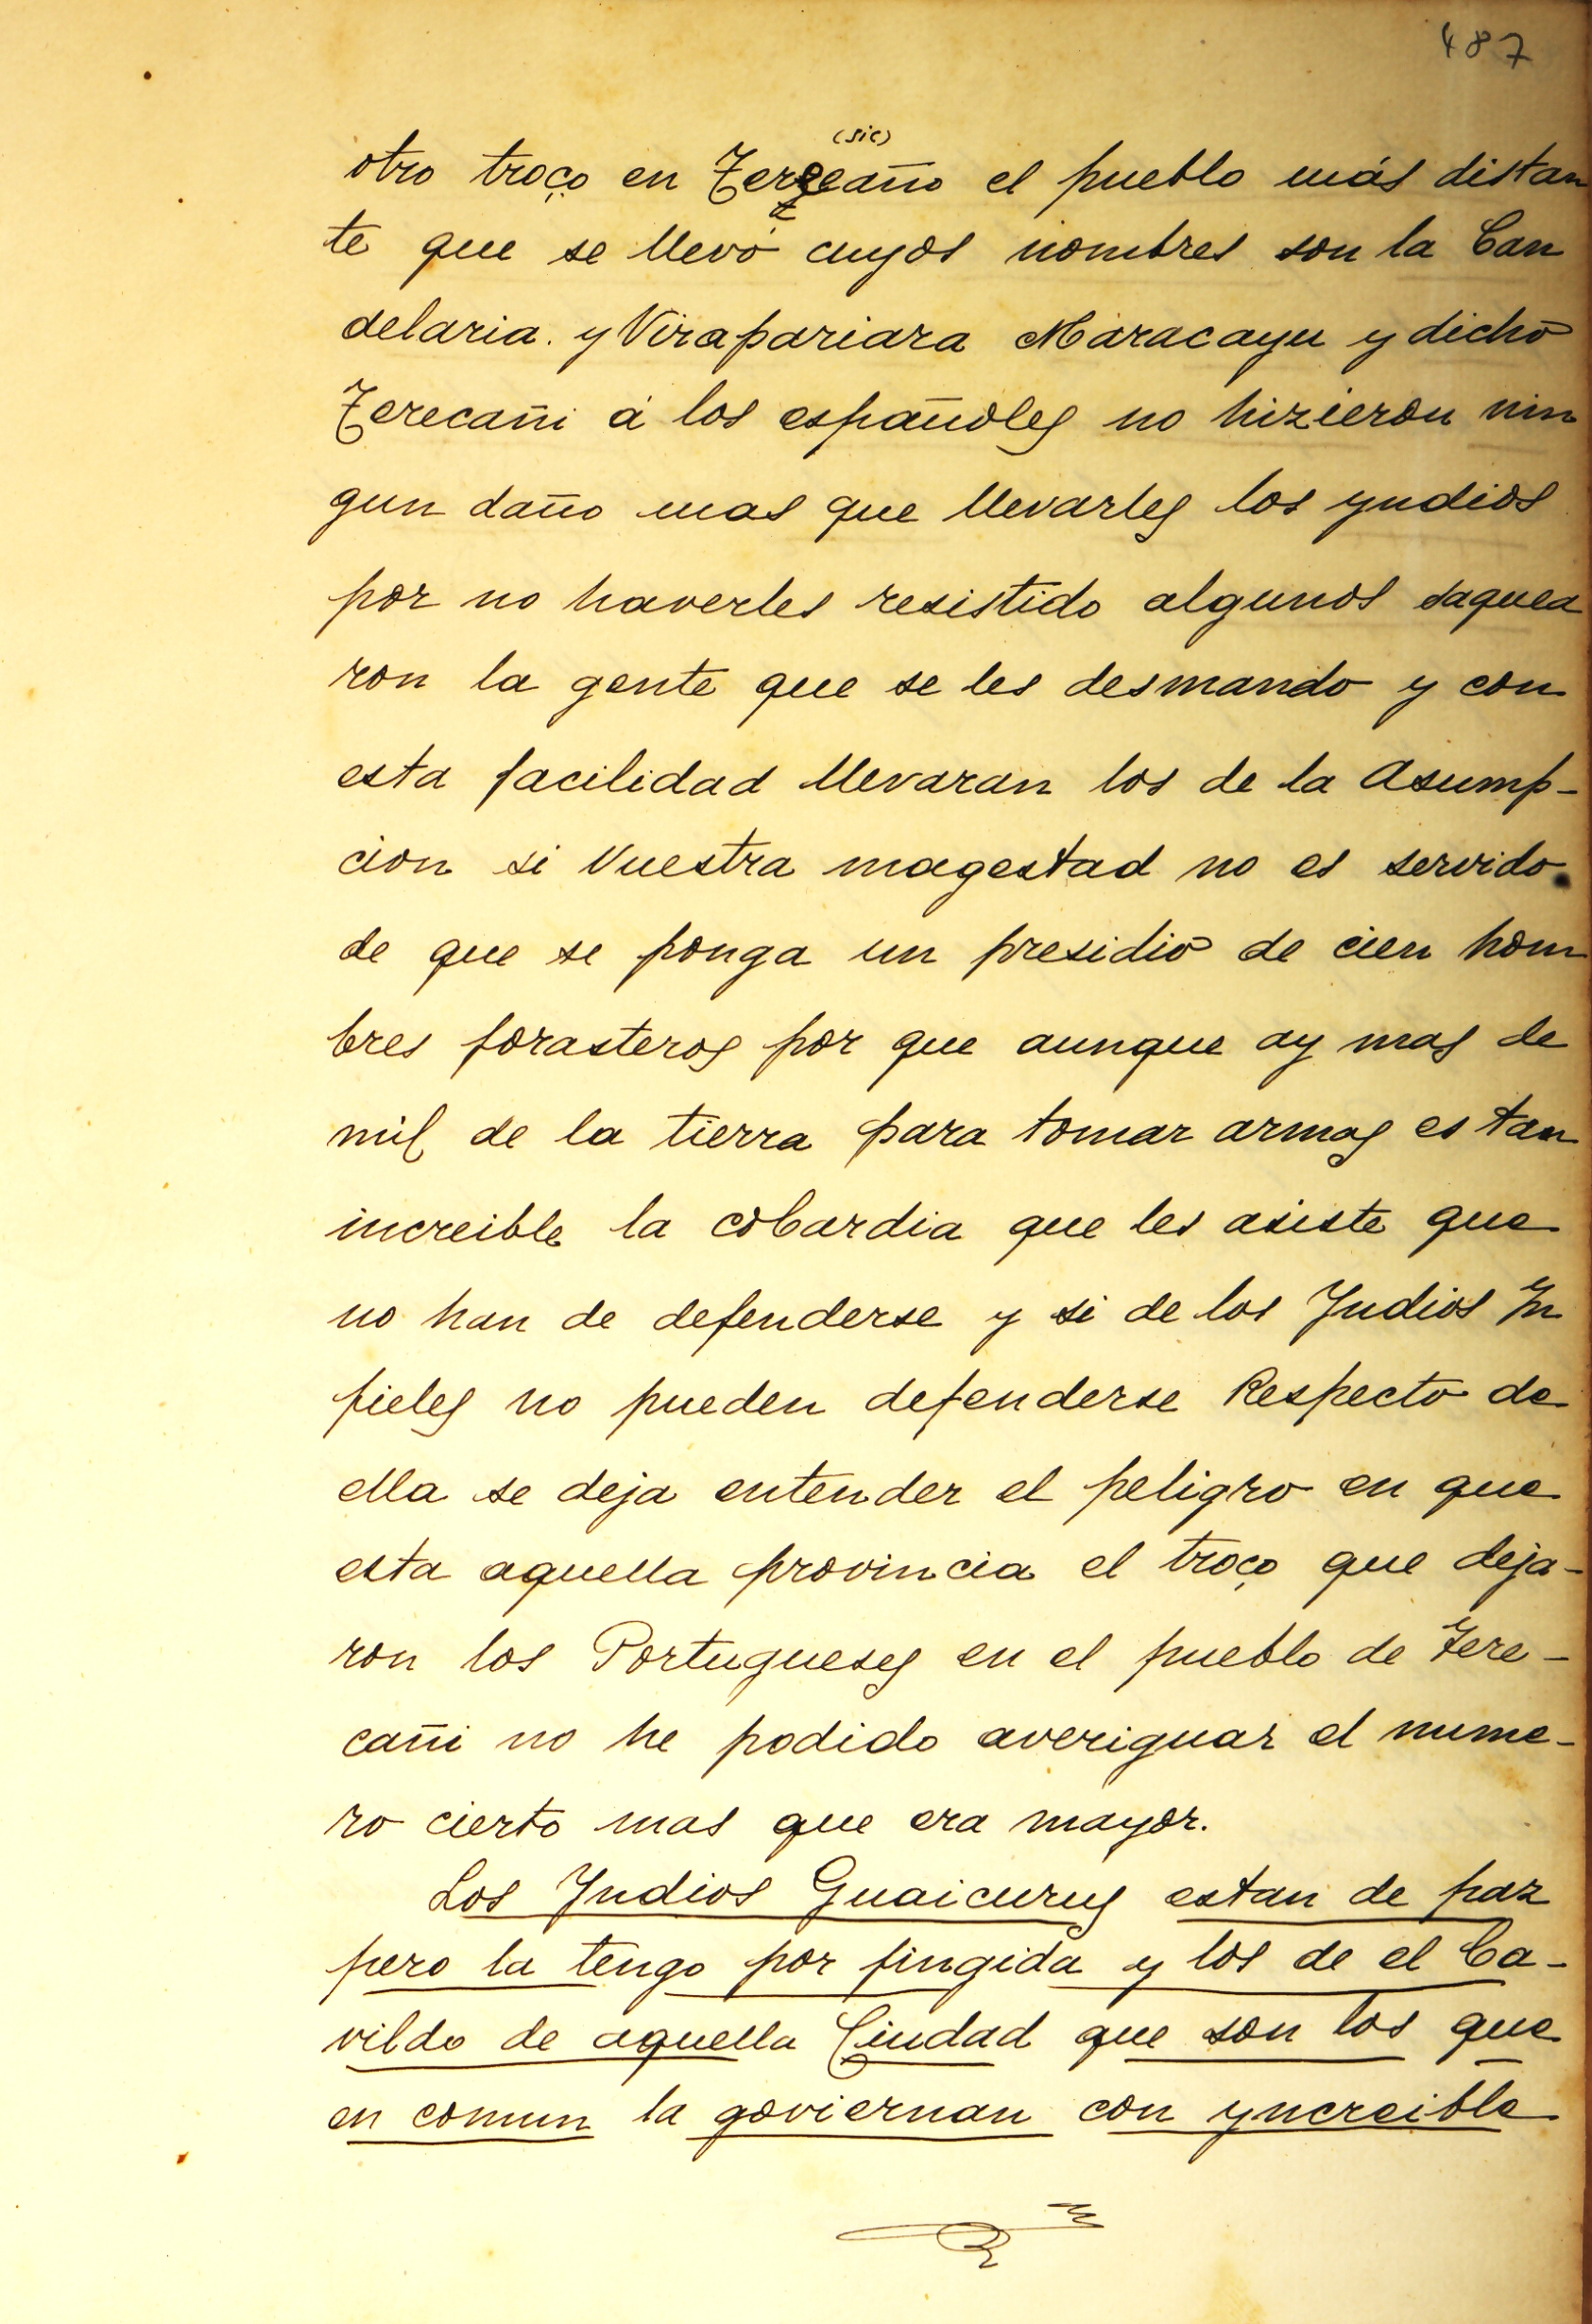 487
(sic)
otro troço en Terecaño el pueblo más distan
te que se llevó cuyos nombres son la Can
delaria. y Virapariara Maracayu y dicho
Terecañi á los españoles no hizieron nin
gun daño mas que llevarles los yndios
por no haverles resistido algunos saquea
ron la gente que se les desmando y con
esta facilidad llevaran los de la Asump-
cion si Vuestra magestad no es servido
de que se ponga un presidio de cien hom
bres forasteros por que aunque ay mas de
mil de la tierra para tomar armas es tan
increible la cobardia que les asiste que
no han de defenderse y si de los Yndios In
fieles no pueden defenderse Respecto de
ella se deja entender el peligro en que
esta aquella provincia el troço que deja-
ron los Portugueses en el pueblo de Tere-
cañi no he podido averiguar el nume-
ro cierto mas que era mayor.
Los Yndios Guaicurus estan de paz
pero la tengo por fingida y los de el Ca-
vildo de aquella Ciudad que son los que
en comun la goviernan con yncreible